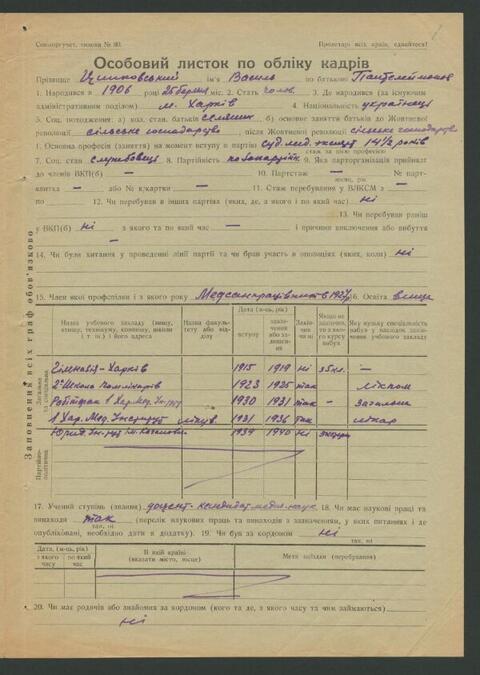 Союзоргучет, типова № 30.
Пролетарі всіх країн, єднайтеся!
Особовий листок по обліку кадрів
Прізвище Цишковський ім'я Василь по батькові Пантелеймонов
1. Народився в 1906 році 25 березня міс. 2. Стать чолов. 3. Де народився (за існуючим
адміністративним поділом) м. Харків 4. Національність українець
5. Соц. походження: а) кол. стан батьків селянин б) основне заняття батьків до Жовтневої
революції сільське господарство, після Жовтневої революції сільське господарство
6. Основна професія (заняття) на момент вступу в партію суд. мед. эксперт 14 1/2 років
стаж за цією професією
7. Соц. стан службовець 8. Партійність позапартійн 9. Яка парторганізація прийняла
до членів ВКП(б) — 10. Партстаж — № парт-
місяць, рік
квитка — або № к/картки — 11. Стаж перебування у ВЛКСМ з —
по — 12. Чи перебував в інших партіях (яких, де, з якого і по який час) ні
13. Чи перебував раніш
у ВКП(б) ні з якого та по який час — і причини виключення або вибуття
—
14. Чи були хитання у проведенні лінії партії та чи брав участь в опозиціях (яких, коли) ні
15. Член якої профспілки і з якого року Медсанпрацівників 1927 р 16. Освіта вища
Заповнення всіх граф обов'язково
Назва учбового закладу (вищу, школу, технікуму, комвищу, школи і т. п) і його адреса
Назва факультету або відділу
Дата (м-ць, рік)
вступу
закінчення або залишення
Закінчив чи ні
Якщо не закінчив, то з якого курсу вибув
Яку вузьку спеціальність набув у наслідок закінчення учбового закладу
Загальна та спеціальна
Гімназія - Харків 1915 1919 ні 3 кл. —
2а Школа пом. лікарів 1923 1925 так — лікпом
Робітфак 1 Хар. Мед. Ін-туту 1930 1931 так - загальна
1 Хар. Мед. Інститут лікув. 1931 1936 так — лікар
Юрид. Ін-тут 1939 1940 ні
Партійно-політична
17. Учений ступінь (звання) доцент - кандидат медич. наук 18. Чи має наукові праці та
винаходи так (перелік наукових праць та винаходів з зазначенням, у яких питаннях і де
так, ні
опубліковані, необхідно дати в додатку). 19. Чи був за кордоном ні
так, ні
Дата, (м-ць, рік)
з якого часу
по який час
В якій країні (вказати місто, місце)
Мета поїздки (перебування)
20. Чи має родичів або знайомих за кордоном (кого та де, з якого часу та чим займаються)
ні